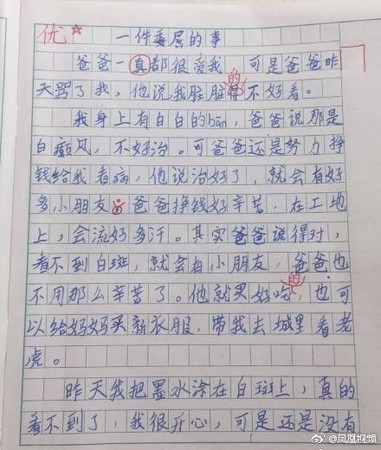 优
一件委屈的事
爸爸一真都很爱我，可是爸爸昨
天骂了我，他说我脏脏得的不好看。
我身上有白白的bān，爸爸说那是
白癜风，不好治。可爸爸还是努力挣
钱给我看病，他说治好了，就会有好
多小朋友。爸爸挣钱好辛苦，在工地
上，会流好多汗。其实爸爸说得对，
看不到白斑，就会有小朋友，爸爸也
不用那么辛苦了。他就买好吃的，也可
以给妈妈买新衣服，带我去城里看老
虎。
昨天我把墨水涂在白斑上，真的
看不到了，我很开心，可是还是没有
@凤凰视频